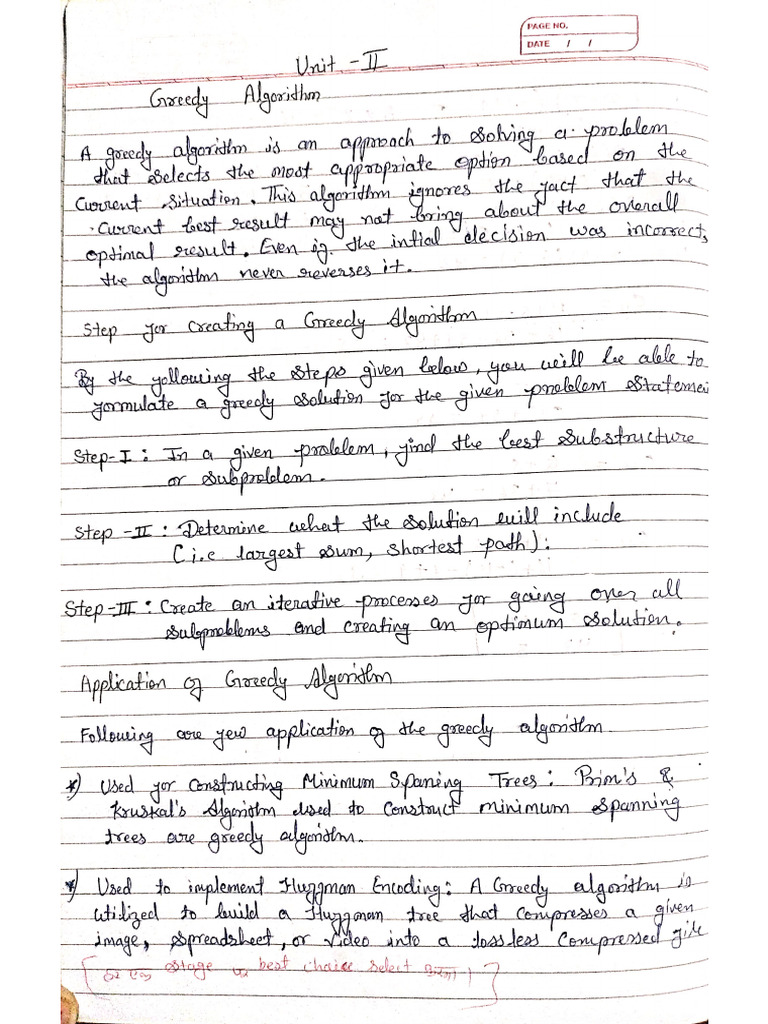 PAGE NO.
DATE / /
Unit - II
Greedy Algorithm
A greedy algorithm is an approach to solving a problem
that selects the most appropriate option based on the
current situation. This algorithm ignores the fact that the
current best result may not bring about the overall
optimal result. Even if the intial decision was incorrect,
the algorithm never reverses it.
Step for creating a Greedy Algorithm
By the following the steps given below, you will be able to
formulate a greedy solution for the given problem statemen
Step-I : In a given problem, find the best substructure
or subproblem.
Step -II : Determine what the solution will include
(i.e largest sum, shortest path):
Step-III : Create an iterative processes for going over all
subproblems and creating an optimum solution.
Application of Greedy Algorithm
Following are few application of the greedy algorithm
*) Used for constructing Minimum Spaning Trees : Prim's &
Kruskal's Algorithm used to construct minimum spanning
trees are greedy algorithm.
*) Used to implement Huffman Encoding : A Greedy algorithm is
utilized to build a Huffman tree that compresses a given
image, spreadsheet, or video into a lossless compressed file
[ हर एक stage पर best choice select करना । ]